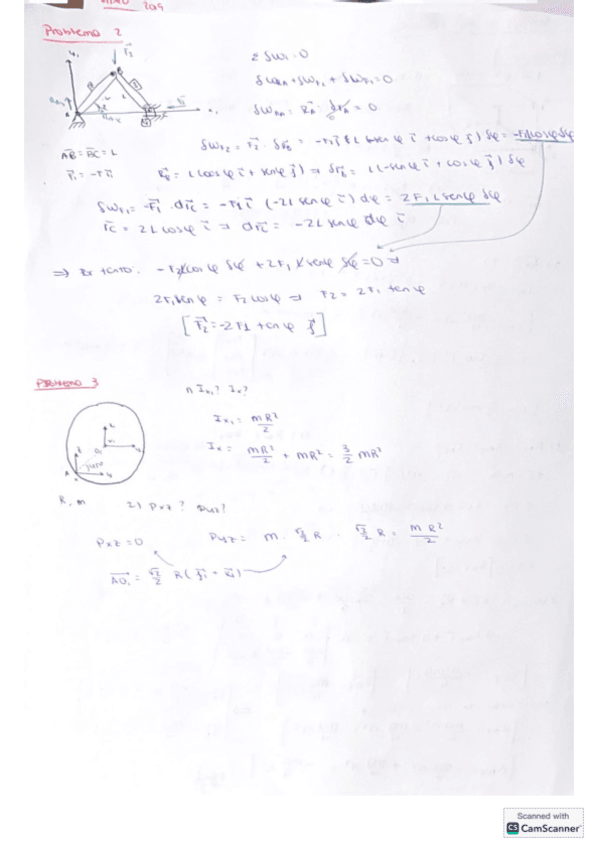 2019
Problema 2
Σ δW = 0
δW_RA + δW_F2 + δW_F1 = 0
δW_RA = R_A · δr_A = 0
AB = BC = L
F₁ = -F₁ i
δW_F2 = F₂ · δr_B = -F₂ j L (-sen φ i + cos φ j) δφ = -F₂ L cos φ δφ
r_B = L (cos φ i + sen φ j) ⇒ δr_B = L (-sen φ i + cos φ j) δφ
δW_F1 = -F₁ · dr_C = -F₁ i (-2L sen φ i) dφ = 2F₁ L sen φ δφ
r_C = 2L cos φ i ⇒ dr_C = -2L sen φ dφ i
-F₂ L cos φ δφ + 2F₁ L sen φ δφ = 0 ⇒
2F₁ sen φ = F₂ cos φ ⇒ F₂ = 2F₁ tan φ
[F₂ = -2F₁ tan φ j]
Problema 3
I_x₁? I_x?
I_x₁ = mR²/2
I_x = mR²/2 + mR² = 3/2 mR²
R, m
2) Pxz? Pyz?
Pxz = 0
Pyz = m · √2/2 R · √2/2 R = mR²/2
AO₁ = √2/2 R (j₁ + k₁)
Scanned with
CS CamScanner